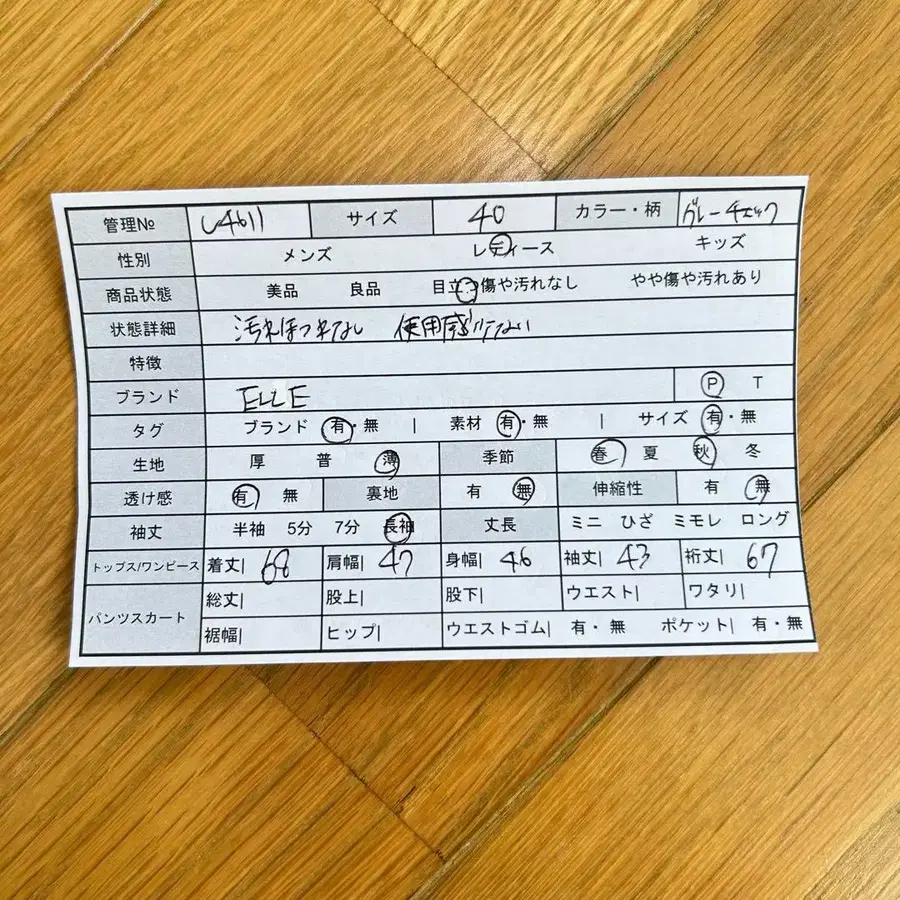 管理№ U4611 サイズ 40 カラー・柄 グレーチェック
性別 メンズ レディース キッズ
商品状態 美品 良品 目立つ傷や汚れなし やや傷や汚れあり
状態詳細 汚れほつれなし 使用感少ない
特徴
ブランド ELLE P T
タグ ブランド 有・無 | 素材 有・無 | サイズ 有・無
生地 厚 普 薄 季節 春 夏 秋 冬
透け感 有 無 裏地 有 無 伸縮性 有 無
袖丈 半袖 5分 7分 長袖 丈長 ミニ ひざ ミモレ ロング
トップス/ワンピース 着丈| 68 肩幅| 47 身幅| 46 袖丈| 43 裄丈| 67
パンツスカート 総丈| 股上| 股下| ウエスト| ワタリ|
裾幅| ヒップ| ウエストゴム| 有・無 ポケット| 有・無